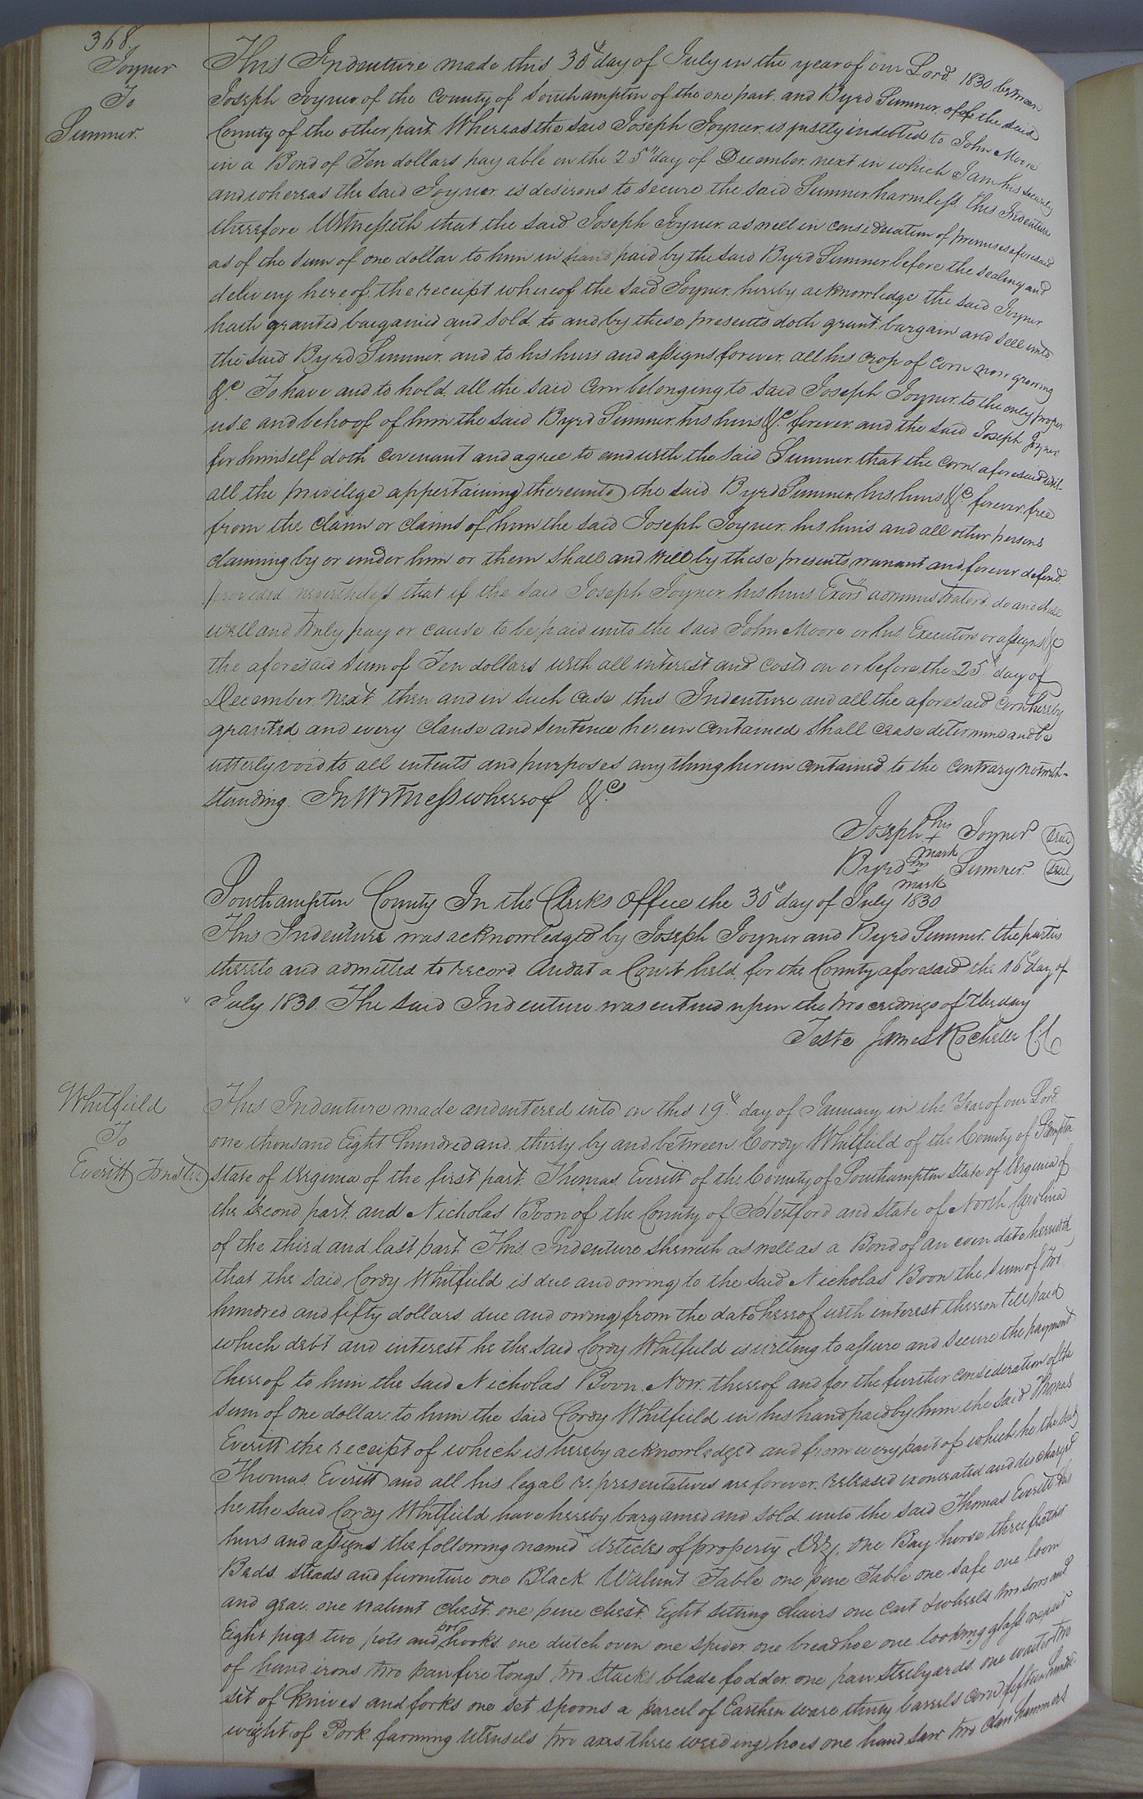 368.
Joyner
To
Sumner
This Indenture made this 30th day of July in the year of our Lord 1830 between
Joseph Joyner of the County of Southampton of the one part, and Byrd Sumner of the said
County of the other part. Whereas the said Joseph Joyner is justly indebted to John Moore
in a Bond of Ten dollars payable on the 25th day of December next in which I am his security
and whereas the said Joyner is desirous to secure the said Sumner harmless, this Indenture
therefore Witnesseth that the said Joseph Joyner as well in consideration of premises aforesaid
as of the sum of one dollar to him in hand paid by the said Byrd Sumner before the sealing and
delivery hereof, the receipt whereof the said Joyner hereby acknowledge the said Joyner
hath granted bargained and sold to and by these presents doth grant bargain and sell unto
the said Byrd Sumner, and to his heirs and assigns forever, all his crop of corn now growing
&c. To have and to hold, all the said corn belonging to said Joseph Joyner to the only proper
use and behoof of him the said Byrd Sumner his heirs &c. forever and the said Joseph Joyner
for himself doth covenant and agree to and with the said Sumner that the corn aforesaid with
all the privilege appertaining thereunto the said Byrd Sumner his heirs &c forever free
from the claim or claims of him the said Joseph Joyner, his heirs and all other persons
claiming by or under him or them shall and Will by these presents warrant and forever defend,
provided nevertheless that if the said Joseph Joyner his heirs Exors administrators do and shall
well and truly pay or cause to be paid unto the said John Moore or his Executors or assigns &c
the aforesaid sum of Ten dollars with all interest and costs on or before the 25th day of
December next then and in such case this Indenture and all the aforesaid corn hereby
granted and every Clause and sentence herein contained shall cease determine and be
utterly void to all intents and purposes any thing herein contained to the contrary notwith-
standing. In Witness whereof &c.
Joseph his + mark Joyner Seal
Byrd his + mark Sumner Seal
Southampton County In the Clerks Office the 30th day of July 1830
This Indenture was acknowledged by Joseph Joyner and Byrd Sumner the parties
thereto and admitted to record And at a Court held for the County aforesaid the 16th day of
July 1830 The said Indenture was entered upon the proceedings of the day
Teste James Rochelle CC
Whitfield
To
Everitt Trustee
This Indenture made and entered into on this 19th day of January in the Year of our Lord
one thousand Eight hundred and thirty by and between Cordy Whitfield of the County of
State of Virginia of the first part. Thomas Everitt of the County of Southampton State of Virginia of
the second part and Nicholas Boon of the County of Hertford and State of North Carolina
of the third and last part. This Indenture sheweth as well as a Bond of an even date herewith
that the said Cordy Whitfield is due and owing to the said Nicholas Boon the sum of two
hundred and fifty dollars due and owing from the date hereof with interest thereon till paid
which debt and interest he the said Cordy Whitfield is willing to assure and secure the payment
thereof to him the said Nicholas Boon. Now thereof and for the further consideration of the
sum of one dollar to him the said Cordy Whitfield in his hand paid by him the said Thomas
Everitt the receipt of which is hereby acknowledged and from every part of which he the said
Thomas Everitt and all his legal representatives are forever released exonerated and discharged
he the said Cordy Whitfield have hereby bargained and sold unto the said Thomas Everitt his
heirs and assigns the following named Articles of property Viz, one Bay horse three feather
Beds steads and furniture one Black Walnut Table one pine Table one safe one loom
and gear one walnut chest, one pine chest. Eight sitting chairs one Cart & wheels two sows and
Eight pigs two pots and pot hooks one dutch oven one spider one bread hoe one looking glass one pair
of hand irons two pair fire tongs, two Stacks blade fodder, one pair Steelyards one waiter two
set of knives and forks one set spoons a parcel of Earthen ware thirty barrels corn fifteen hundred
weight of Pork farming Utensils two axes three weeding hoes one hand saw two Claw hammers